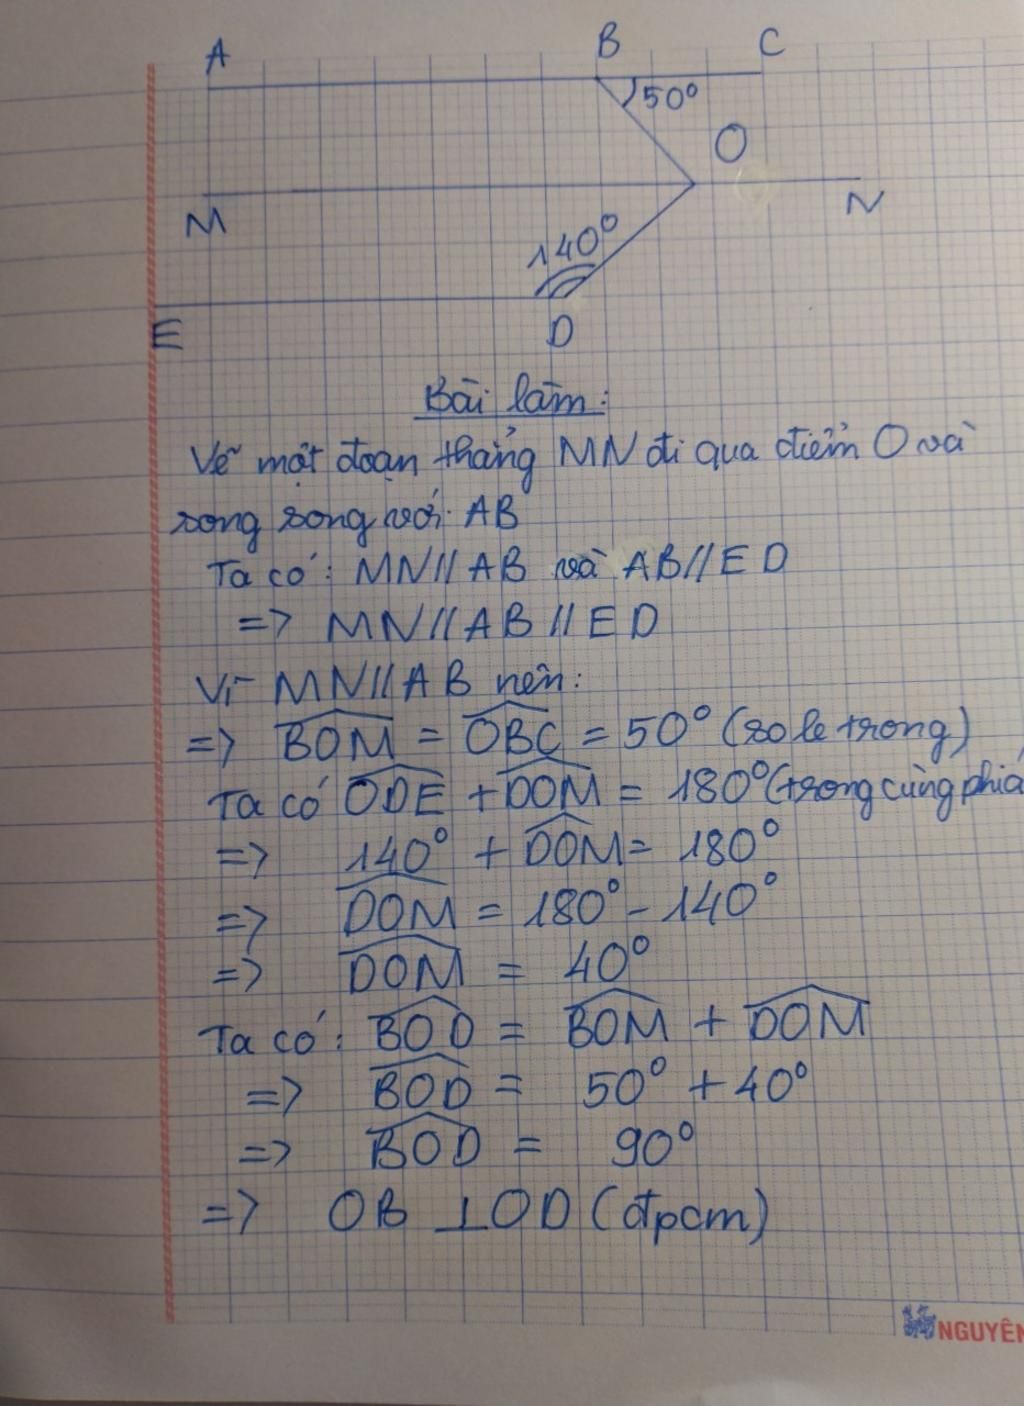 A B C
50°
O
M N
140°
E D
Bài làm:
Vẽ một đoạn thẳng MN đi qua điểm O và
song song với AB
Ta có: MN//AB và AB//ED
=> MN//AB//ED
Vì MN//AB nên:
=> \widehat{BOM} = \widehat{OBC} = 50° (so le trong)
Ta có \widehat{ODE} + \widehat{DOM} = 180° (trong cùng phía
=> 140° + \widehat{DOM} = 180°
=> \widehat{DOM} = 180° - 140°
=> \widehat{DOM} = 40°
Ta có: \widehat{BOD} = \widehat{BOM} + \widehat{DOM}
=> \widehat{BOD} = 50° + 40°
=> \widehat{BOD} = 90°
=> OB ⊥ OD (đpcm)
NGUYÊN